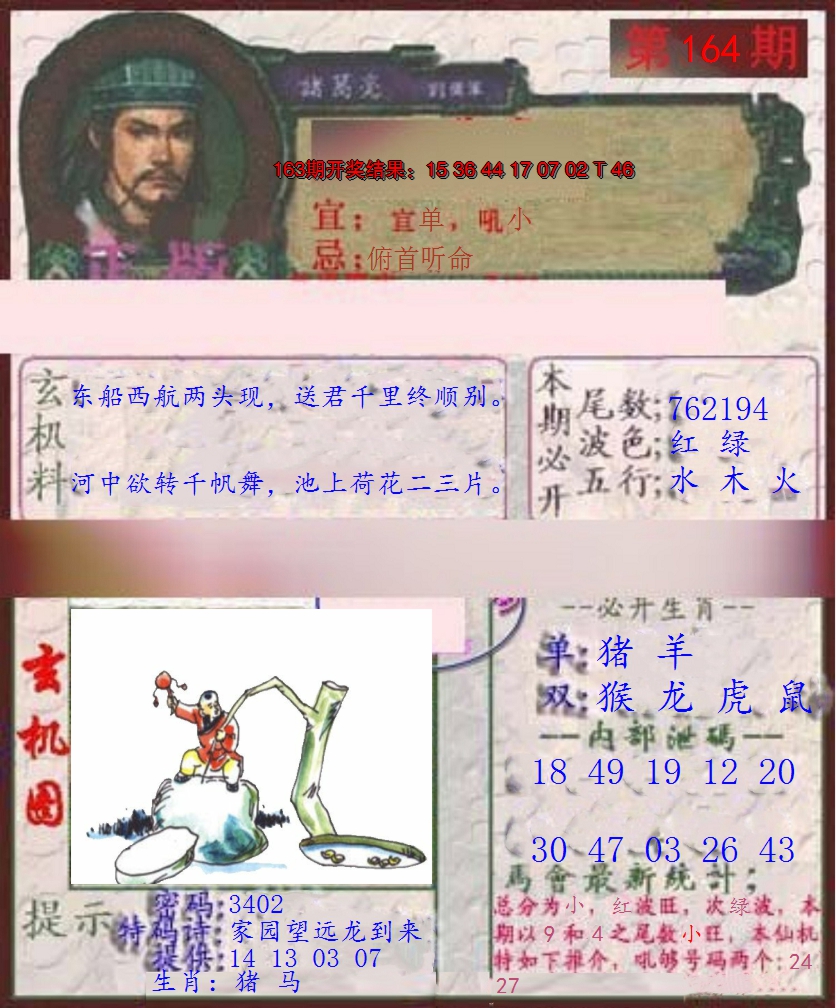 第 164 期
諸葛亮
163期开奖结果：15 36 44 17 07 02 T 46
宜；宜单，吼小
忌；俯首听命
正版
玄机料
东船西航两头现，送君千里终顺别。
河中欲转千帆舞，池上荷花二三片。
本期必开
尾数；762194
波色；红 绿
五行；水 木 火
玄机图
--必开生肖--
单：猪 羊
双：猴 龙 虎 鼠
一一内部泄碼一一
18 49 19 12 20
30 47 03 26 43
馬會最新統計；
总分为小，红波旺，次绿波，本
期以9和4之尾数小旺，本仙机
特如下推介，吼够号码两个：24
27
提示
密码：3402
特码诗：家园望远龙到来
提供：14 13 03 07
生肖：猪 马